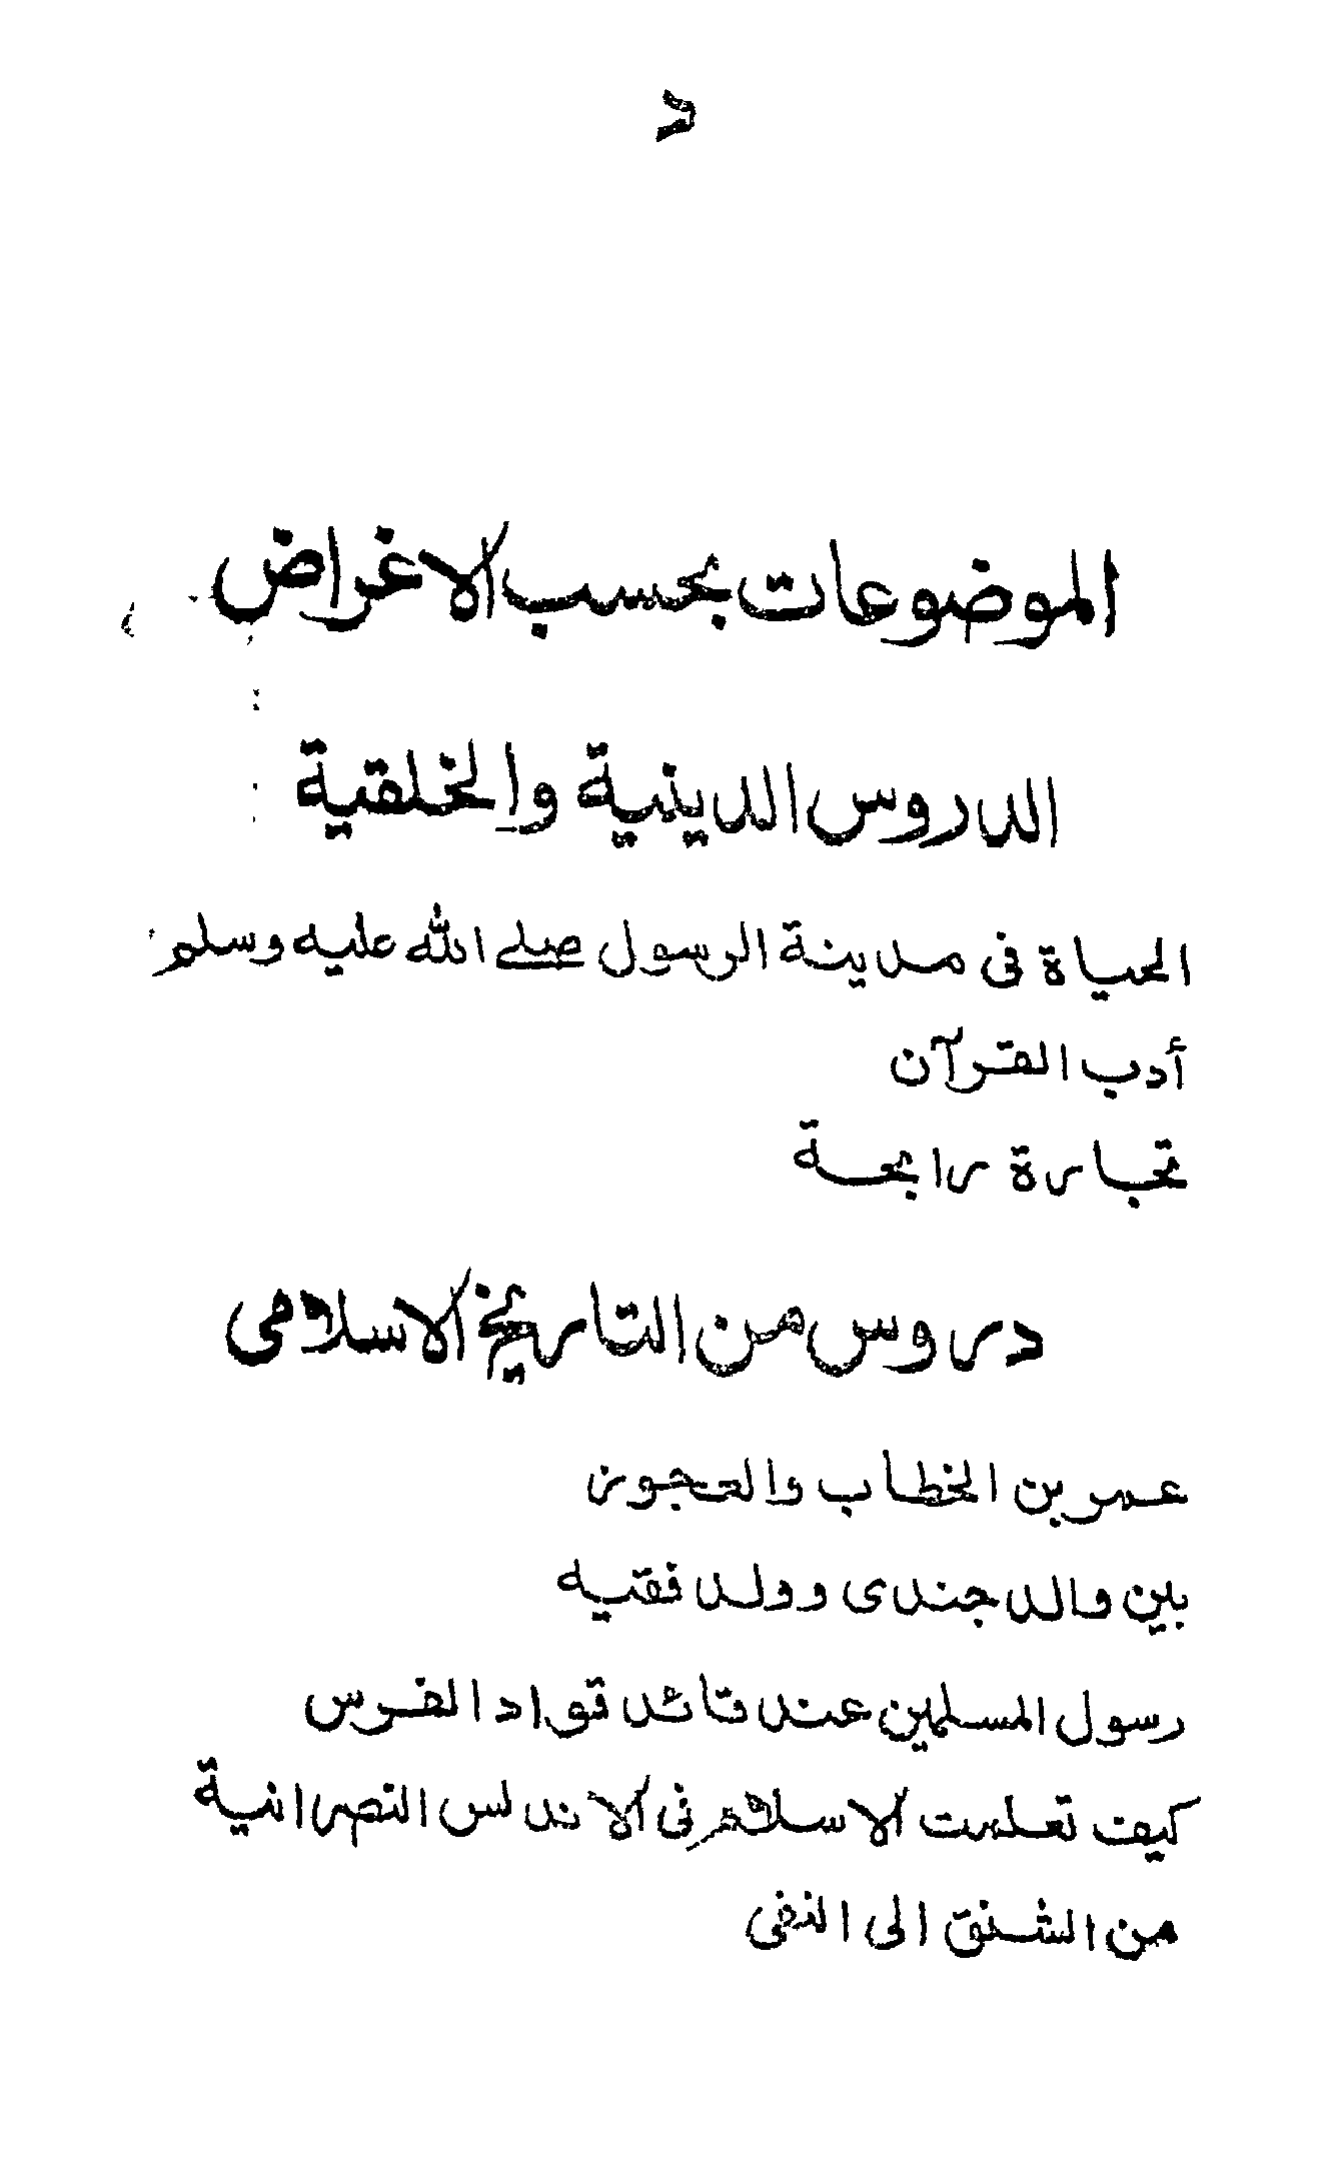 د
الموضوعات بحسب الاغراض
الدروس الدينية والخلقية
الحياة فى مدينة الرسول صلے الله عليه وسلم
أدب القرآن
تجارة رابحة
دروس من التاريخ الاسلامى
عمر بن الخطاب والعجوز
بين والد جندى وولد فقيه
رسول المسلمين عند قائد قواد الفرس
كيف تعلمت الاسلام فى الاندلس النصرانية
من الشنق الى النفى